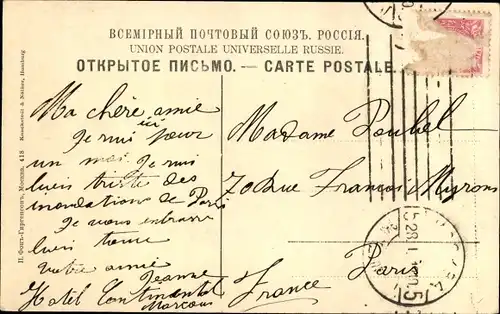 ВСЕМІРНЫЙ ПОЧТОВЫЙ СОЮЗЪ. РОССІЯ.
UNION POSTALE UNIVERSELLE RUSSIE.
ОТКРЫТОЕ ПИСЬМО. — CARTE POSTALE.
Ma chère amie
Je suis ici pour
un moi. Je suis
bien triste des
inondations de Paris
Je vous embrasse
bien
votre amie
Jeanne
Hotel Continental
Moscou
Madame
70 Rue François
Paris
France
П. Фонъ-Гиргенсонъ, Москва. 418
Knackstedt & Näther, Hamburg
МОСКВА
28 1
5